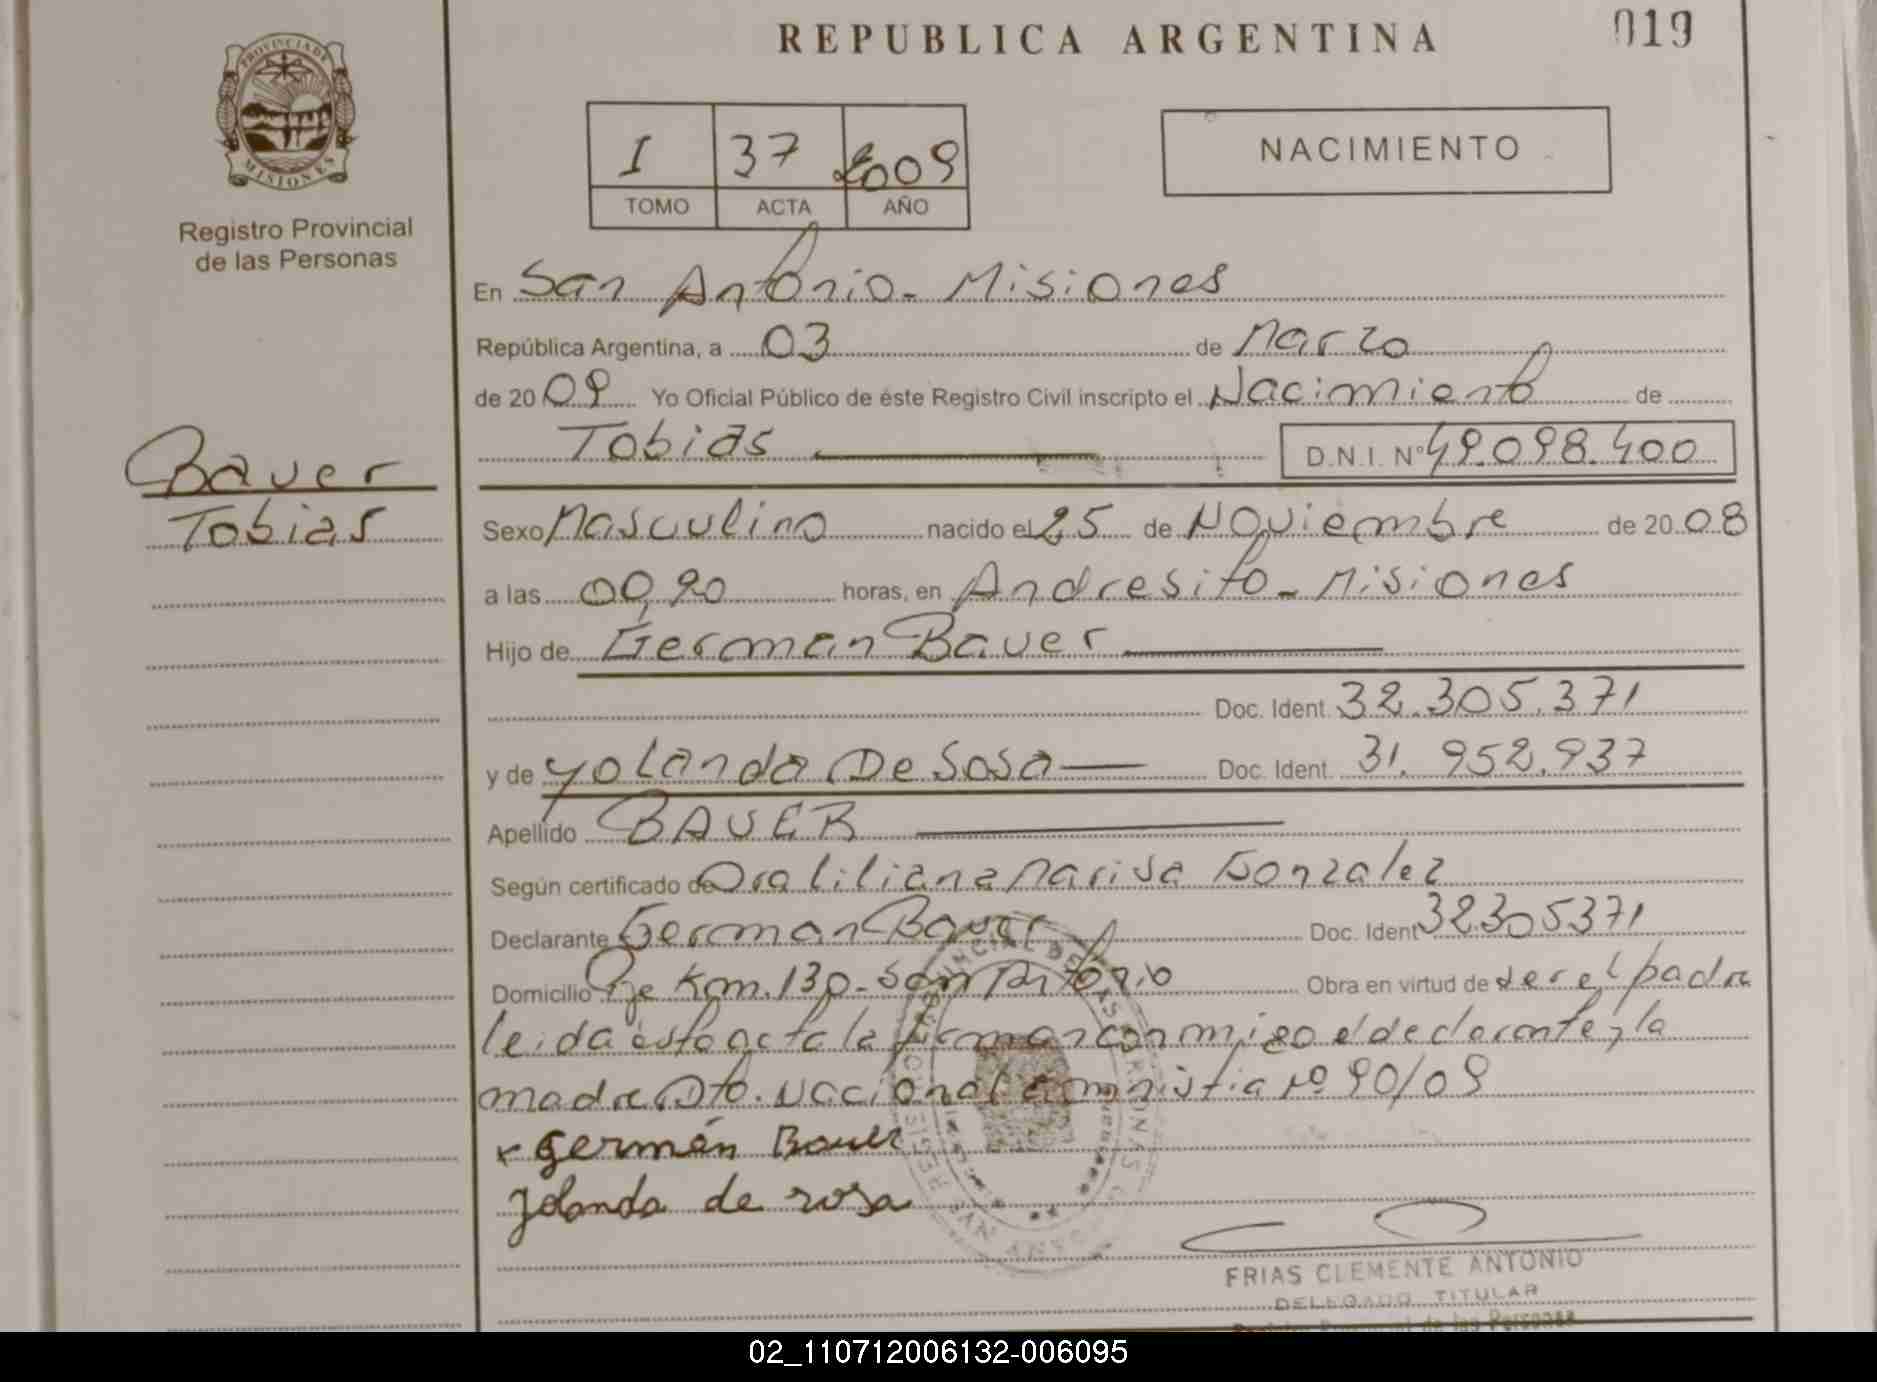 REPUBLICA ARGENTINA
019
PROVINCIA DE MISIONES
Registro Provincial
de las Personas
I 37 2009
TOMO ACTA AÑO
NACIMIENTO
En San Antonio - Misiones
República Argentina, a 03 de Marzo
de 2009 Yo Oficial Público de éste Registro Civil inscripto el Nacimiento de
Tobias D.N.I. Nº 49.098.400
Bauer
Tobias
Sexo Masculino nacido el 25 de Noviembre de 2008
a las 00,20 horas, en Andresito - Misiones
Hijo de German Bauer
Doc. Ident. 32.305.371
y de Yolanda De Sosa Doc. Ident. 31.952.937
Apellido BAUER
Según certificado de Dra liliana Marisa Gonzalez
Declarante German Bauer Doc. Ident 32305371
Domicilio Pje Km. 130 - San Antonio Obra en virtud de ser el padre
leida esta acta la firman conmigo el declarante y la
madre. Dto. Nacional amnistia Nº 90/09
x Germán Bauer
Yolanda de sosa
FRIAS CLEMENTE ANTONIO
DELEGADO TITULAR
Registro Provincial de las Personas
02_110712006132-006095